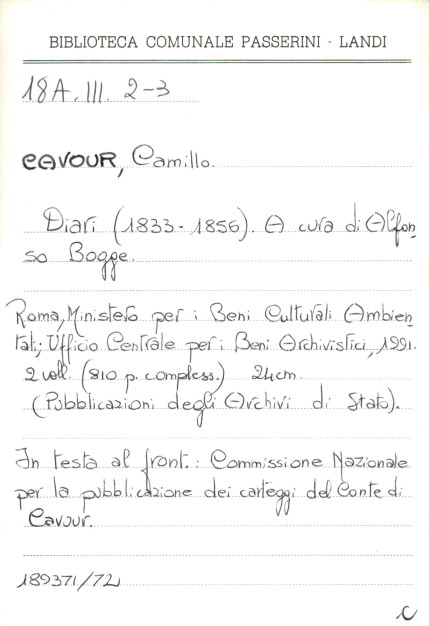 BIBLIOTECA COMUNALE PASSERINI - LANDI
18A.III. 2-3
CAVOUR, Camillo.
Diari (1833-1856). A cura di Alfon
so Bogge.
Roma, Ministero per i Beni Culturali Ambien
tali; Ufficio Centrale per i Beni Archivistici, 1991.
2 voll. (810 p. compless.) 24cm.
(Pubblicazioni degli Archivi di Stato).
In testa al front.: Commissione Nazionale
per la pubblicazione dei carteggi del Conte di
Cavour.
189371/72
C